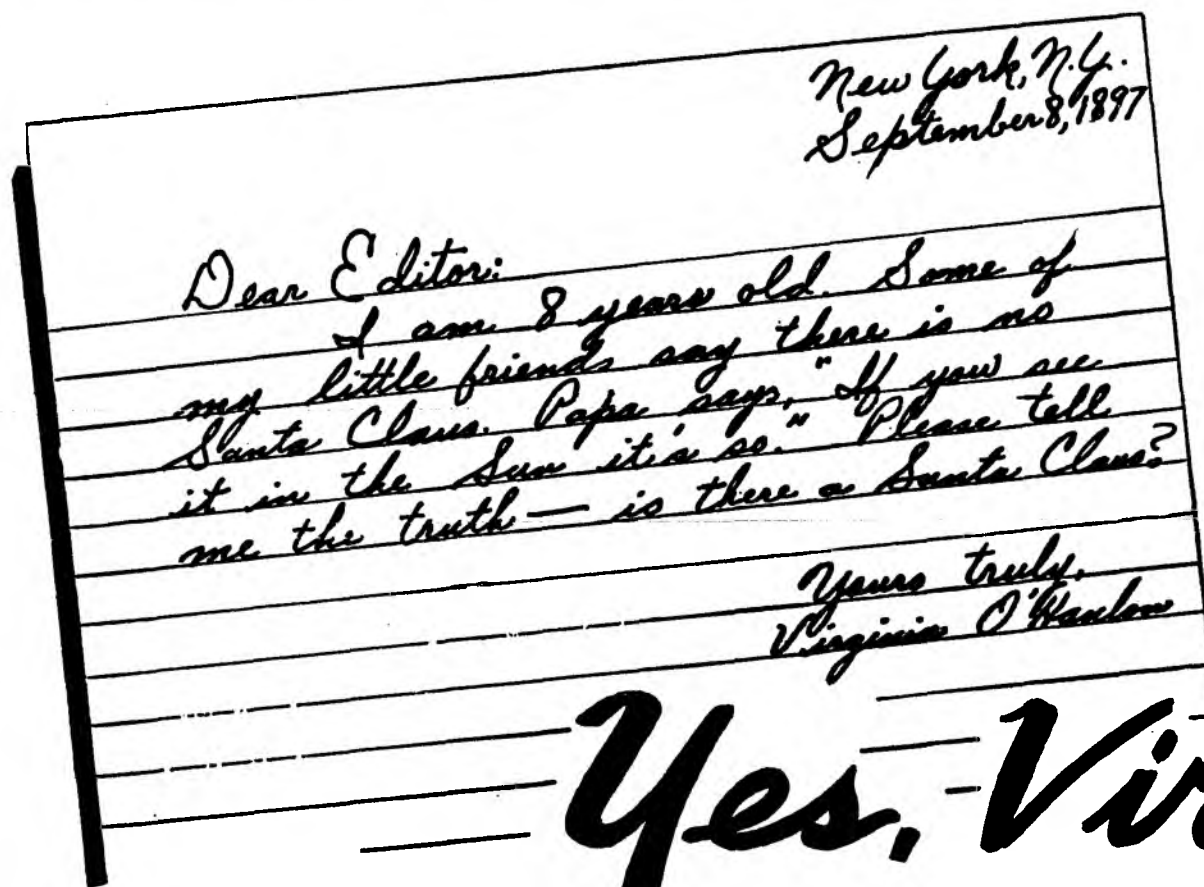 New York, N.Y.
September 8, 1897
Dear Editor:
I am 8 years old. Some of
my little friends say there is no
Santa Claus. Papa says, "If you see
it in the Sun it's so." Please tell
me the truth — is there a Santa Claus?
Yours truly,
Virginia O'Hanlon
Yes, Vir